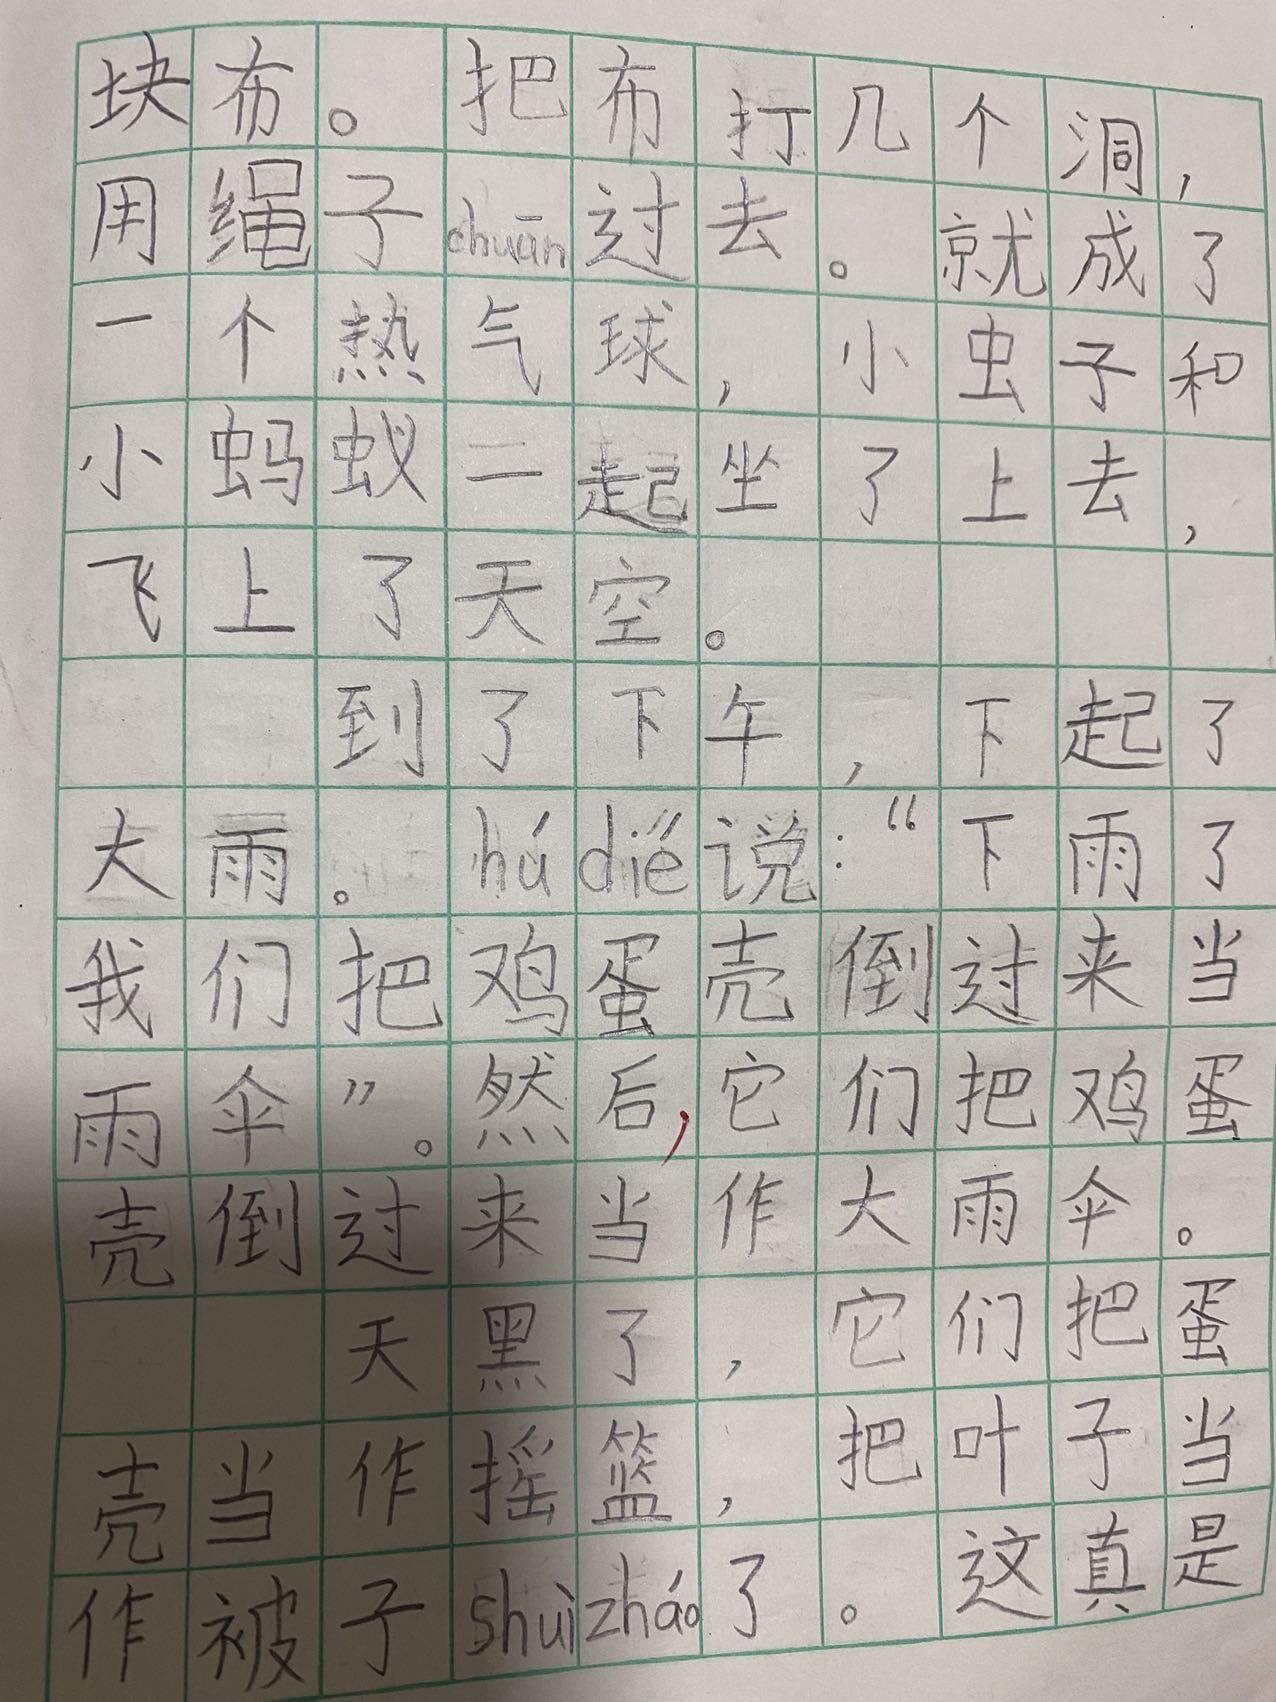 块布。把布打几个洞，
用绳子chuān过去。就成了
一个热气球，小虫子和
小蚂蚁一起坐了上去，
飞上了天空。
到了下午，下起了
大雨。hú dié说：“下雨了
我们把鸡蛋壳倒过来当
雨伞”。然后，它们把鸡蛋
壳倒过来当作大雨伞。
天黑了，它们把蛋
壳当作摇篮，把叶子当
作被子shuì zháo了。这真是